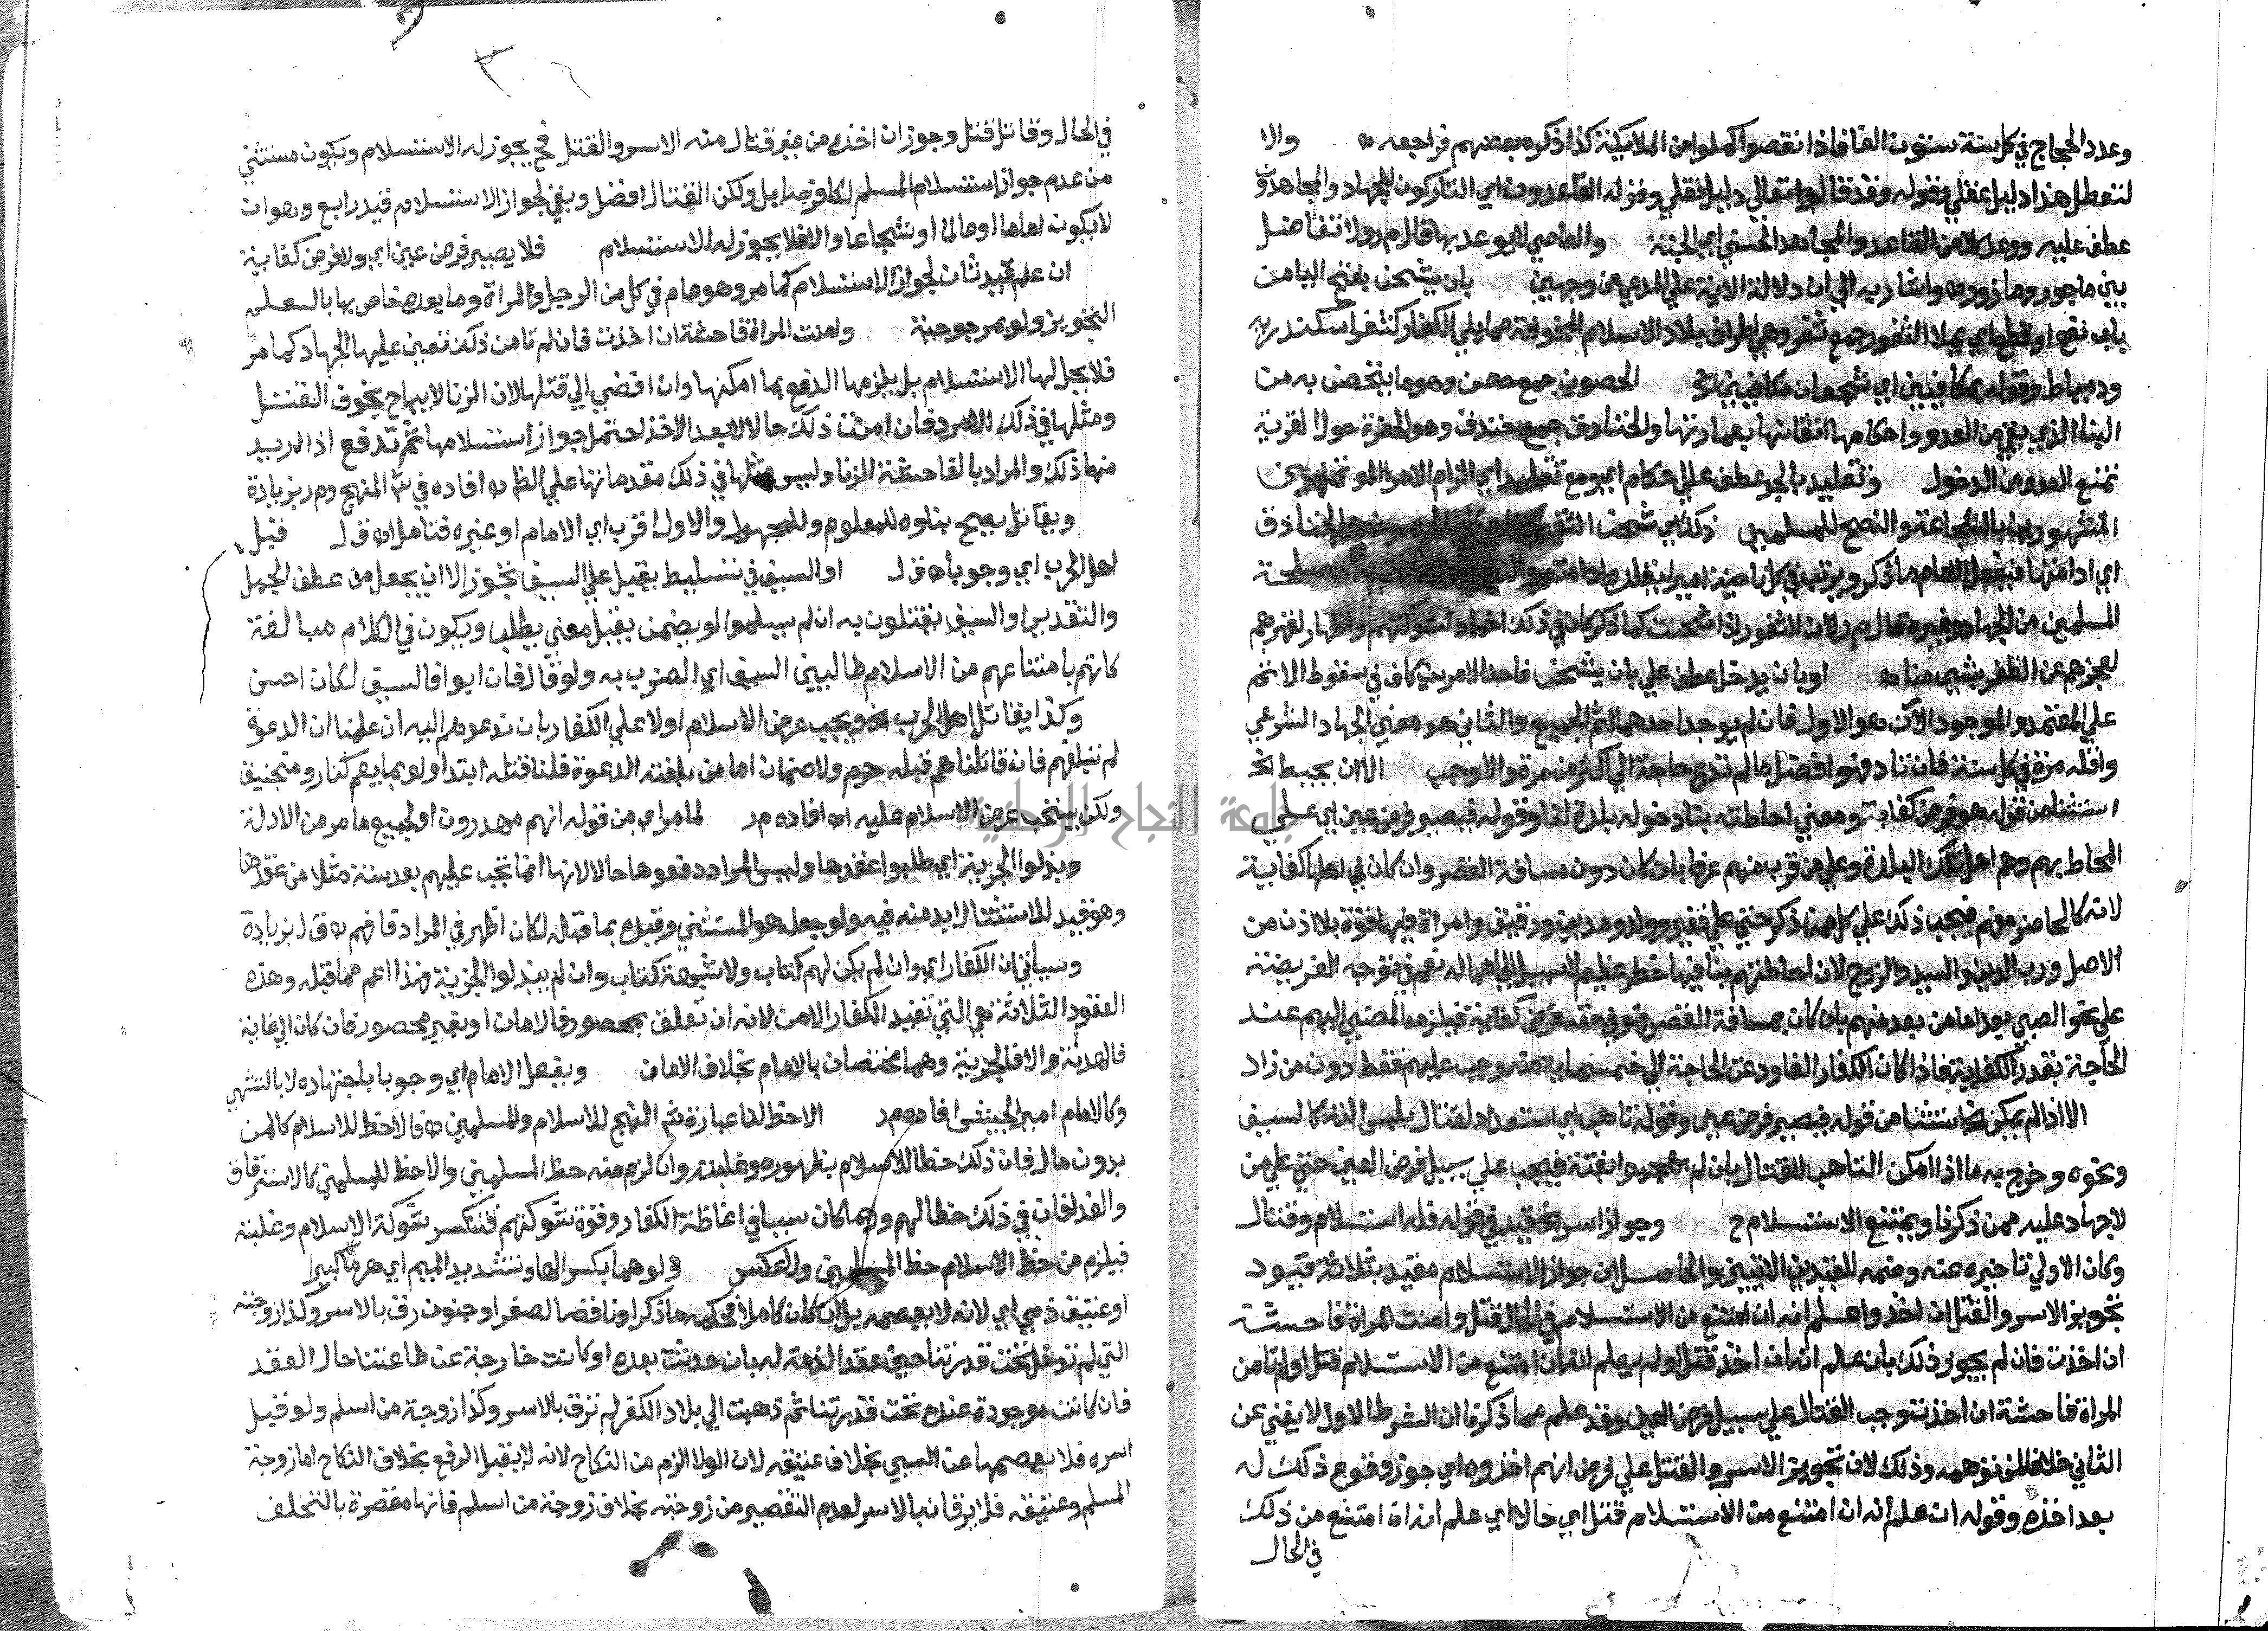 وعدد الحجاج في كل سنة ستون الفا فاذا نقصوا كملوا من الملايكة كذا ذكره بعضهم فراجعه والا
لتعطل هذا دليل عقلي وقوله وقد قال تعالى دليل نقلي وقوله القاعدون اي التاركون للجهاد والمجاهدون
عطف عليه ووعد كلا من القاعد والمجاهد الحسني اي الجنة والعاصي لا يوعد بها قال م ر ولا تفاضل
بين ماجور ومازور واشار به الي ان دلالة الاية علي المدعي من وجهين بان يشحن بفتح اليا من
باب نفع او قطع اي يملا الثغور جمع ثغر وهي اطراف بلاد الاسلام المخوفة مما يلي الكفار كثغر اسكندريه
ودمياط وقوله بمكافيين اي شجعان مكافيين الخ الحصون جمع حصن وهو ما يتحصن به من
البنا الذي يقي من العدو واحكامها اتقانها بعمارتها والخنادق جمع خندق وهو الحفرة حول القرية
تمنع العدو من الدخول وتقليد بالجر عطف علي احكام اي ومع تقليد اي الزام الامرا المؤتمنين
المشهورين بالشجاعة والنصح للمسلمين ذلك اي شحن الثغور الخنادق
اي ادامتها فيفعل الامام ما ذكر ويرتب في كل ناحية اميرا يقلده مصلحة
المسلمين من الجهاد وغيره قال م ر لان الثغور اذا شحنت كما ذكر كان في ذلك اخماد لشوكتهم واظهار لقهرهم
لعجزهم عن الظفر بشي منا او بان يدخل عطف علي بان يشحن فاحد الامرين كاف في سقوط الاثم
علي المعتمد والموجود الان هو الاول فان لم يوجد احدهما اثم الجميع والثاني هو معني الجهاد الشرعي
واقله مرة في كل سنة فان زاد فهو افضل ما لم تدع حاجة الي اكثر من مرة والا وجب الا ان يحيط الخ
استثنا من قوله هو فرض كفاية ومعني احاطته بنا دخوله بلدة لنا وقوله فيصير فرض عين اي علي
المحاط بهم وهم اهل تلك البلدة وعلي من قرب منهم عرفا بان كان دون مسافة القصر وان كان في اهلها كفاية
لانه كالحاضر معهم فيجب ذلك علي كل ممن ذكر حتي علي فقير وولد ومدين ورقيق وامراة فيها قوة بلا اذن من
الاصل ورب الدين والسيد والزوج لان احاطتهم بنا فيها خطر عظيم لا سبيل الي اهماله نعم في توجه الفريضة
علي نحو الصبي بعد اما من بعد منهم بان كان بمسافة القصر فهو في حقه فرض كفاية فيلزمه المضي اليهم عند
الحاجة بقدر الكفاية فاذا كان الكفار الفا ودعت الحاجة الي خمسماية منه وجب عليهم فقط دون من زاد
الا اذا لم يمكن الخ استثنا من قوله فيصير فرض عين وقوله تاهب اي استعداد لقتال بلبس الة كالسيف
ونحوه وخرج به ما اذا امكن التاهب للقتال بان لم يهجموا بغتة فيجب علي سبيل فرض العين حتي علي من
لا جهاد عليه ممن ذكرنا ويمتنع الاستسلام ح وجواز اسر الخ قيد في قوله فله استسلام وقتال
وكان الاولي تاخيره عنه وضمه للقيدين الاتيين والحاصل ان جواز الاستسلام مقيد بثلاثة قيود
تجويز الاسر والقتل ان اخذ واعلم انه ان امتنع من الاستسلام في الحال قتل وامنت المراة فاحشة
ان اخذت فان لم يجوز ذلك بان علم انه ان اخذ قتل اولم يعلم انه ان امتنع من الاستسلام قتل او لم تامن
المراة فاحشة ان اخذت وجب القتال علي سبيل فرض العين وقد علم مما ذكرنا ان الشرط الاول لا يغني عن
الثاني خلافا لمن توهمه وذلك لان تجويز الاسر والقتل علي فرض انهم اخذوه اي جوز وقوع ذلك له
بعد اخذه وقوله ان علم انه ان امتنع من الاستسلام قتل اي حالا اي علم انه ان امتنع من ذلك
في الحال
في الحال وقاتل قتل وجوز ان اخذه من غير قتال منه الاسر والقتل فح يجوز له الاستسلام ويكون مستثني
من عدم جواز استسلام المسلم لكافر ولكن القتال افضل وبقي لجواز الاستسلام قيد رابع وهو ان
لا يكون اماما او عالما او شجاعا والا فلا يجوز له الاستسلام فلا يصير فرض عين اي ولا فرض كفاية
ان علم قيد ثان لجواز الاستسلام كما مر وهو عام في كل من الرجل والمراة وما بعده خاص بها بالسعلي
التجويز ولو بمرجوحية وامنت المراة فاحشة ان اخذت فان لم تامن ذلك تعين عليها الجهاد كما مر
فلا يحل لها الاستسلام بل يلزمها الدفع بما امكنها وان افضي الي قتلها لان الزنا لا يباح بخوف القتل
ومثلها في ذلك الامرد فان امنت ذلك حالا لا بعد الاخذ احتمل جواز استسلامها ثم تدفع اذا اريد
منها ذلك والمراد بالفاحشة الزنا وليس مثلها في ذلك مقدماتها علي الظ افاده في ش المنهج وم ر بزيادة
ويقاتل يصح بناوه للمعلوم وللمجهول والاول اقرب اي الامام او غيره فتامل اه ق ل قيل
اهل الحرب اي وجوبا ق ل او السيف في تسليط يقبل علي السيف تجوز الا ان يجعل من عطف الجمل
والتقدير او السيف يقتلون به ان لم يسلموا او يضمن يقبل معني يطلب ويكون في الكلام مبالغة
كانهم بامتناعهم من الاسلام طالبين السيف اي الضرب به ولو قال فان ابوا فالسيف لكان احسن
وكذا يقاتل اهل الحرب الخ ويجب عرض الاسلام اولا علي الكفار بان ندعوهم اليه ان علمنا ان الدعوة
لم تبلغهم فان قاتلناهم قبله حرم ولا ضمان اما من بلغته الدعوة فلنا قتله ابتدا ولو بما يعم كنار ومنجنيق
ولكن يستحب عرض الاسلام عليه اه افاده م ر لما مر اي من قوله انهم مهدرون او لجميع ما مر من الادلة
وبذلوا الجزية اي طلبوا عقدها وليس المراد دفعوها حالا لانها انما تجب عليهم بعد سنة مثلا من عقدها
وهو قيد للاستثنا لا بد منه فيه ولو جعله هو المستثني وقيده بما قبله لكان اظهر في المراد فافهم ق ل بزيادة
وسياتي ان الكفار اي وان لم يكن لهم كتاب ولا شبهة كتاب وان لم يبذلوا الجزية فهذا اعم مما قبله وهذه
العقود الثلاثة هي التي تفيد الكفار الامن لانه ان تعلق بمحصور فالامان او بغير محصور فان كان الي غاية
فالهدنة والا فالجزية وهما مختصان بالامام بخلاف الامان ويفعل الامام اي وجوبا باجتهاده لا بالتشهي
وكالامام امير الجيش افاده م ر الاحظ لنا عبارة ش المنهج للاسلام والمسلمين فالاحظ للاسلام كالمن
بدون مال فان ذلك حظا للاسلام بظهوره وغلبته وان لزم منه حظ المسلمين والاحظ للمسلمين كالاسترقاق
والفدا فان في ذلك حظا لهم وربما كان سببا في اغاظة الكفار وقوة شوكتهم فتنكسر شوكة الاسلام وغلبته
فيلزم من حظ الاسلام حظ المسلمين ولا عكس ولو هما بكسر الها وتشديد الميم اي هرما كبيرا
او عتيق ذمي اي لانه لا يعصمه بل ان كان كاملا فحكمه ما ذكر او ناقصا لصغر او جنون رق بالاسر وكذا زوجته
التي لم تدخل تحت قدرتنا حين عقد الذمة له بان حدثت بعده او كانت خارجة عن طاعتنا حال العقد
فان كانت موجودة عنده تحت قدرتنا ثم ذهبت الي بلاد الكفر لم ترق بالاسر وكذا زوجة من اسلم ولو قبل
اسره فلا يعصمها عن السبي بخلاف عتيقه لان الولا الزم من النكاح لانه لا يقبل الرفع بخلاف النكاح اما زوجة
المسلم وعتيقه فلا يرقان بالاسر لعدم التقصير من زوجته بخلاف زوجة من اسلم فانها مقصرة بالتخلف
جامعة النجاح الوطنية